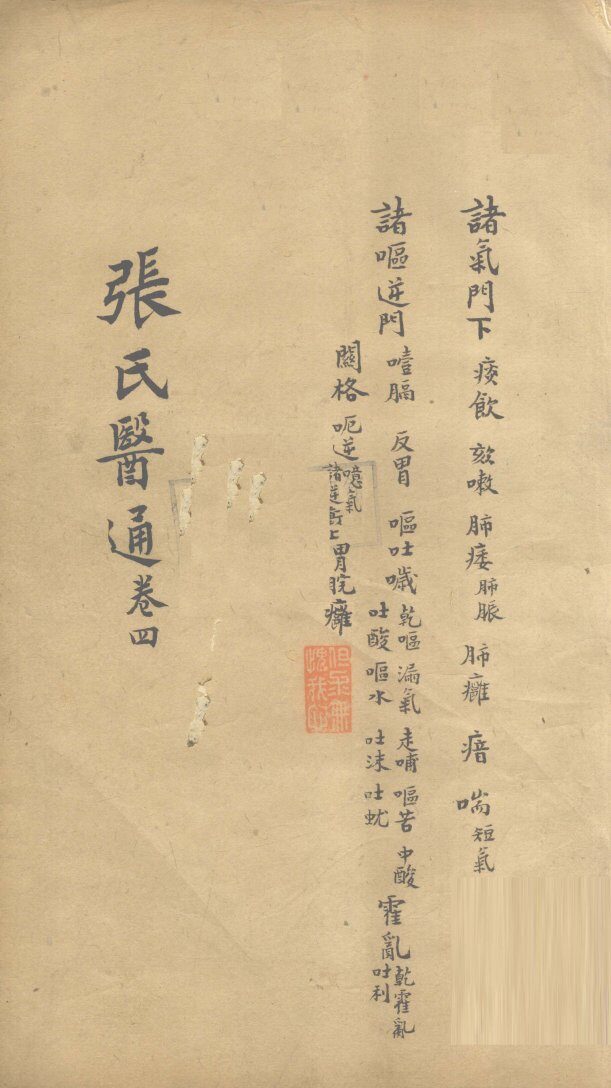 諸氣門下 痰飲 欬嗽 肺痿 肺脹 肺癰 瘖 喘 短氣
諸嘔逆門 噎膈 反胃 嘔吐噦 乾嘔 漏氣 走哺 嘔苦 中酸 吐酸 嘔水 吐沫 吐蚘 霍亂 乾霍亂 吐利
關格 呃逆 噫氣 諸逆衝上 胃脘癰
但求無愧我心
張氏醫通卷四